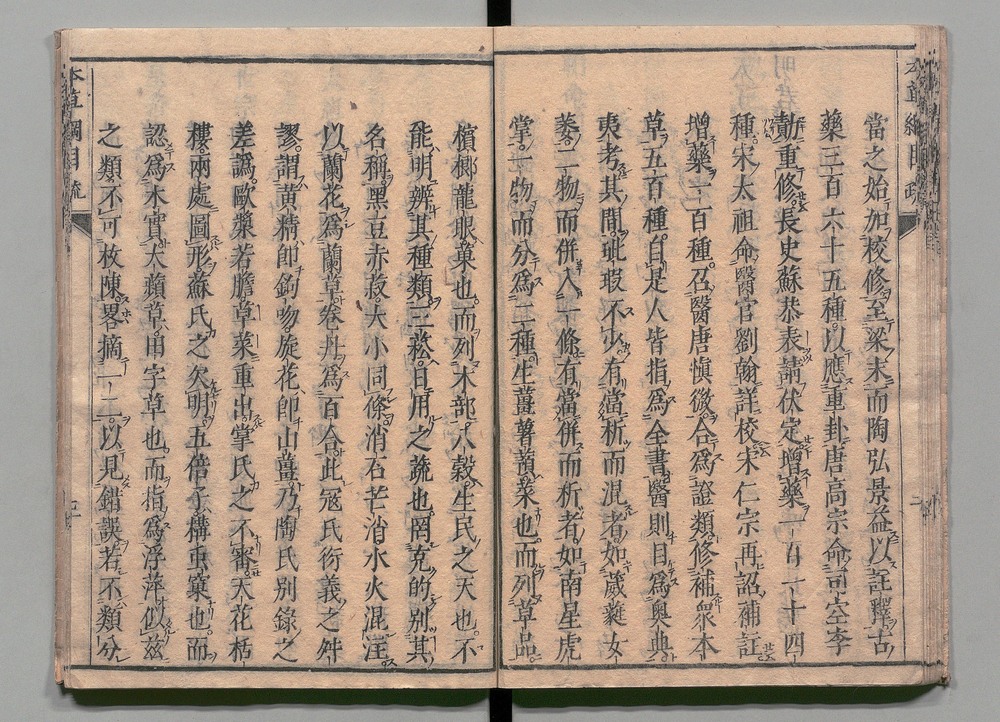 當之始加校修至梁末而陶弘景益以註釋古
藥三百六十五種以應重卦唐高宗命司空李
勣重修長史蘇恭表請伏定增藥一百一十四
種宋太祖命醫官劉翰詳校宋仁宗再詔補註
增藥一百種召醫唐愼微合爲證類修補衆本
草五百種自是人皆指爲全書醫則目爲奧典
夷考其間玼瑕不少有當析而混者如葳蕤女
萎二物而併入一條有當併而析者如南星虎
掌一物而分爲二種生薑薯蕷菜也而列草品
檳榔龍眼菓也而列木部八穀生民之天也不
能明辨其種類三菘日用之蔬也罔克的別其
名稱黑豆赤菽大小同條消石芒消水火混注
以蘭花爲蘭草卷丹爲百合此寇氏衍義之舛
謬謂黃精即鈎吻旋花即山薑乃陶氏別錄之
差譌歐漿若膽草菜重出掌氏之不審天花栝
樓兩處圖形蘇氏之欠明五倍子構重窠也而
認爲木實大蘋草田字草也而指爲浮萍似兹
之類不可枚陳畧摘一二以見錯誤若不類分
本草綱目 疏